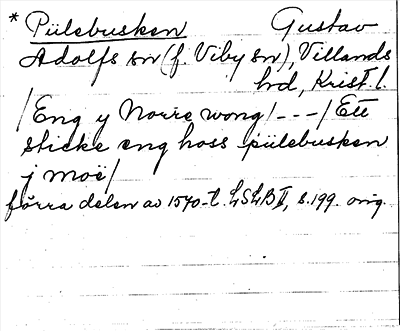 * Piilebusken Gustav
Adolfs sn (f. Viby sn), Villands
hd, Krist. l.
/Eng y Norre wong/ - - - / Ett
sticke eng hoss piilebusken
j moë/
förra delen av 1570-t. LSLB II, s. 199. orig.